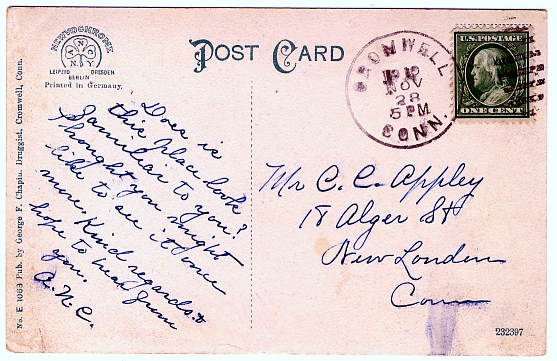 NEWVOCHROME
N
N O
N.Y.
LEIPZIG DRESDEN
BERLIN
Printed in Germany.
POST CARD
CROMWELL
NOV
28
5 PM
CONN.
U.S. POSTAGE
ONE CENT
No. E 1063 Pub. by George F. Chapin, Druggist, Cromwell, Conn.
Does is
this place look
familiar to you?
thought you might
like to see it once
more. Kind regards &
hope to hear from
you.
A.N.C.
Mr C. C. Appley
18 Alger St
New London
Conn
232397